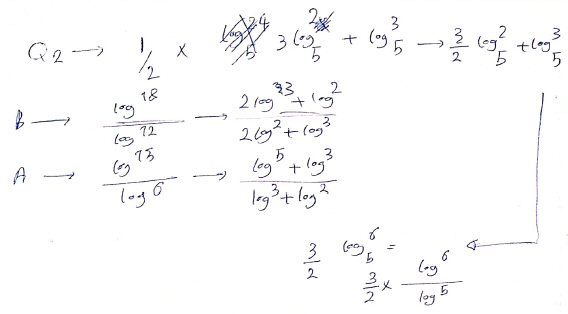 Q2 → 1/2 × 3 log₅² + log₅³ → 3/2 log₅² + log₅³
B → log¹⁸ / log¹² → 2 log³ + log² / 2 log² + log³
A → log¹⁵ / log⁶ → log⁵ + log³ / log³ + log²
3/2 log₅⁶ =
3/2 × log⁶ / log⁵